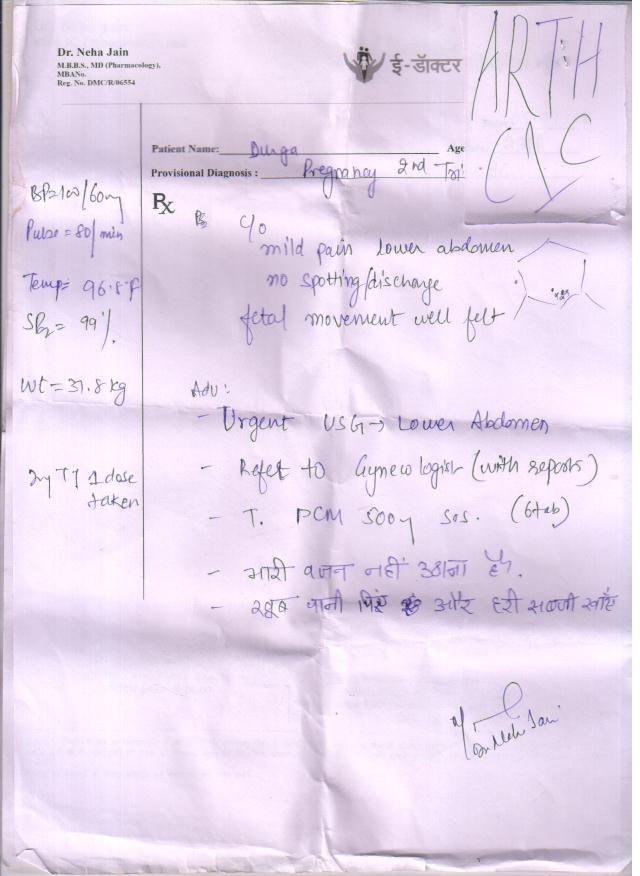 Dr. Neha Jain
M.B.B.S., MD (Pharmacology),
MBANo.
Reg. No. DMC/R/06554
ई-डॉक्टर
ARTH
Patient Name: Durga Age
Provisional Diagnosis : Pregnancy 2nd Tri
BP=100/60
Pulse = 80/min
Temp= 96.8°F
SPO2 = 99%
Wt = 31.8 kg
Inj TT 1 dose
taken
Rx
c/o
mild pain lower abdomen
no spotting/discharge
fetal movement well felt
Adv:
- Urgent USG → Lower Abdomen
- Refer to Gynecologist (with reports)
- T. PCM 500mg sos. (6tab)
- भारी वजन नहीं उठाना है.
- खूब पानी पिएं और हरी सब्जी खाएँ
Dr Neha Jain